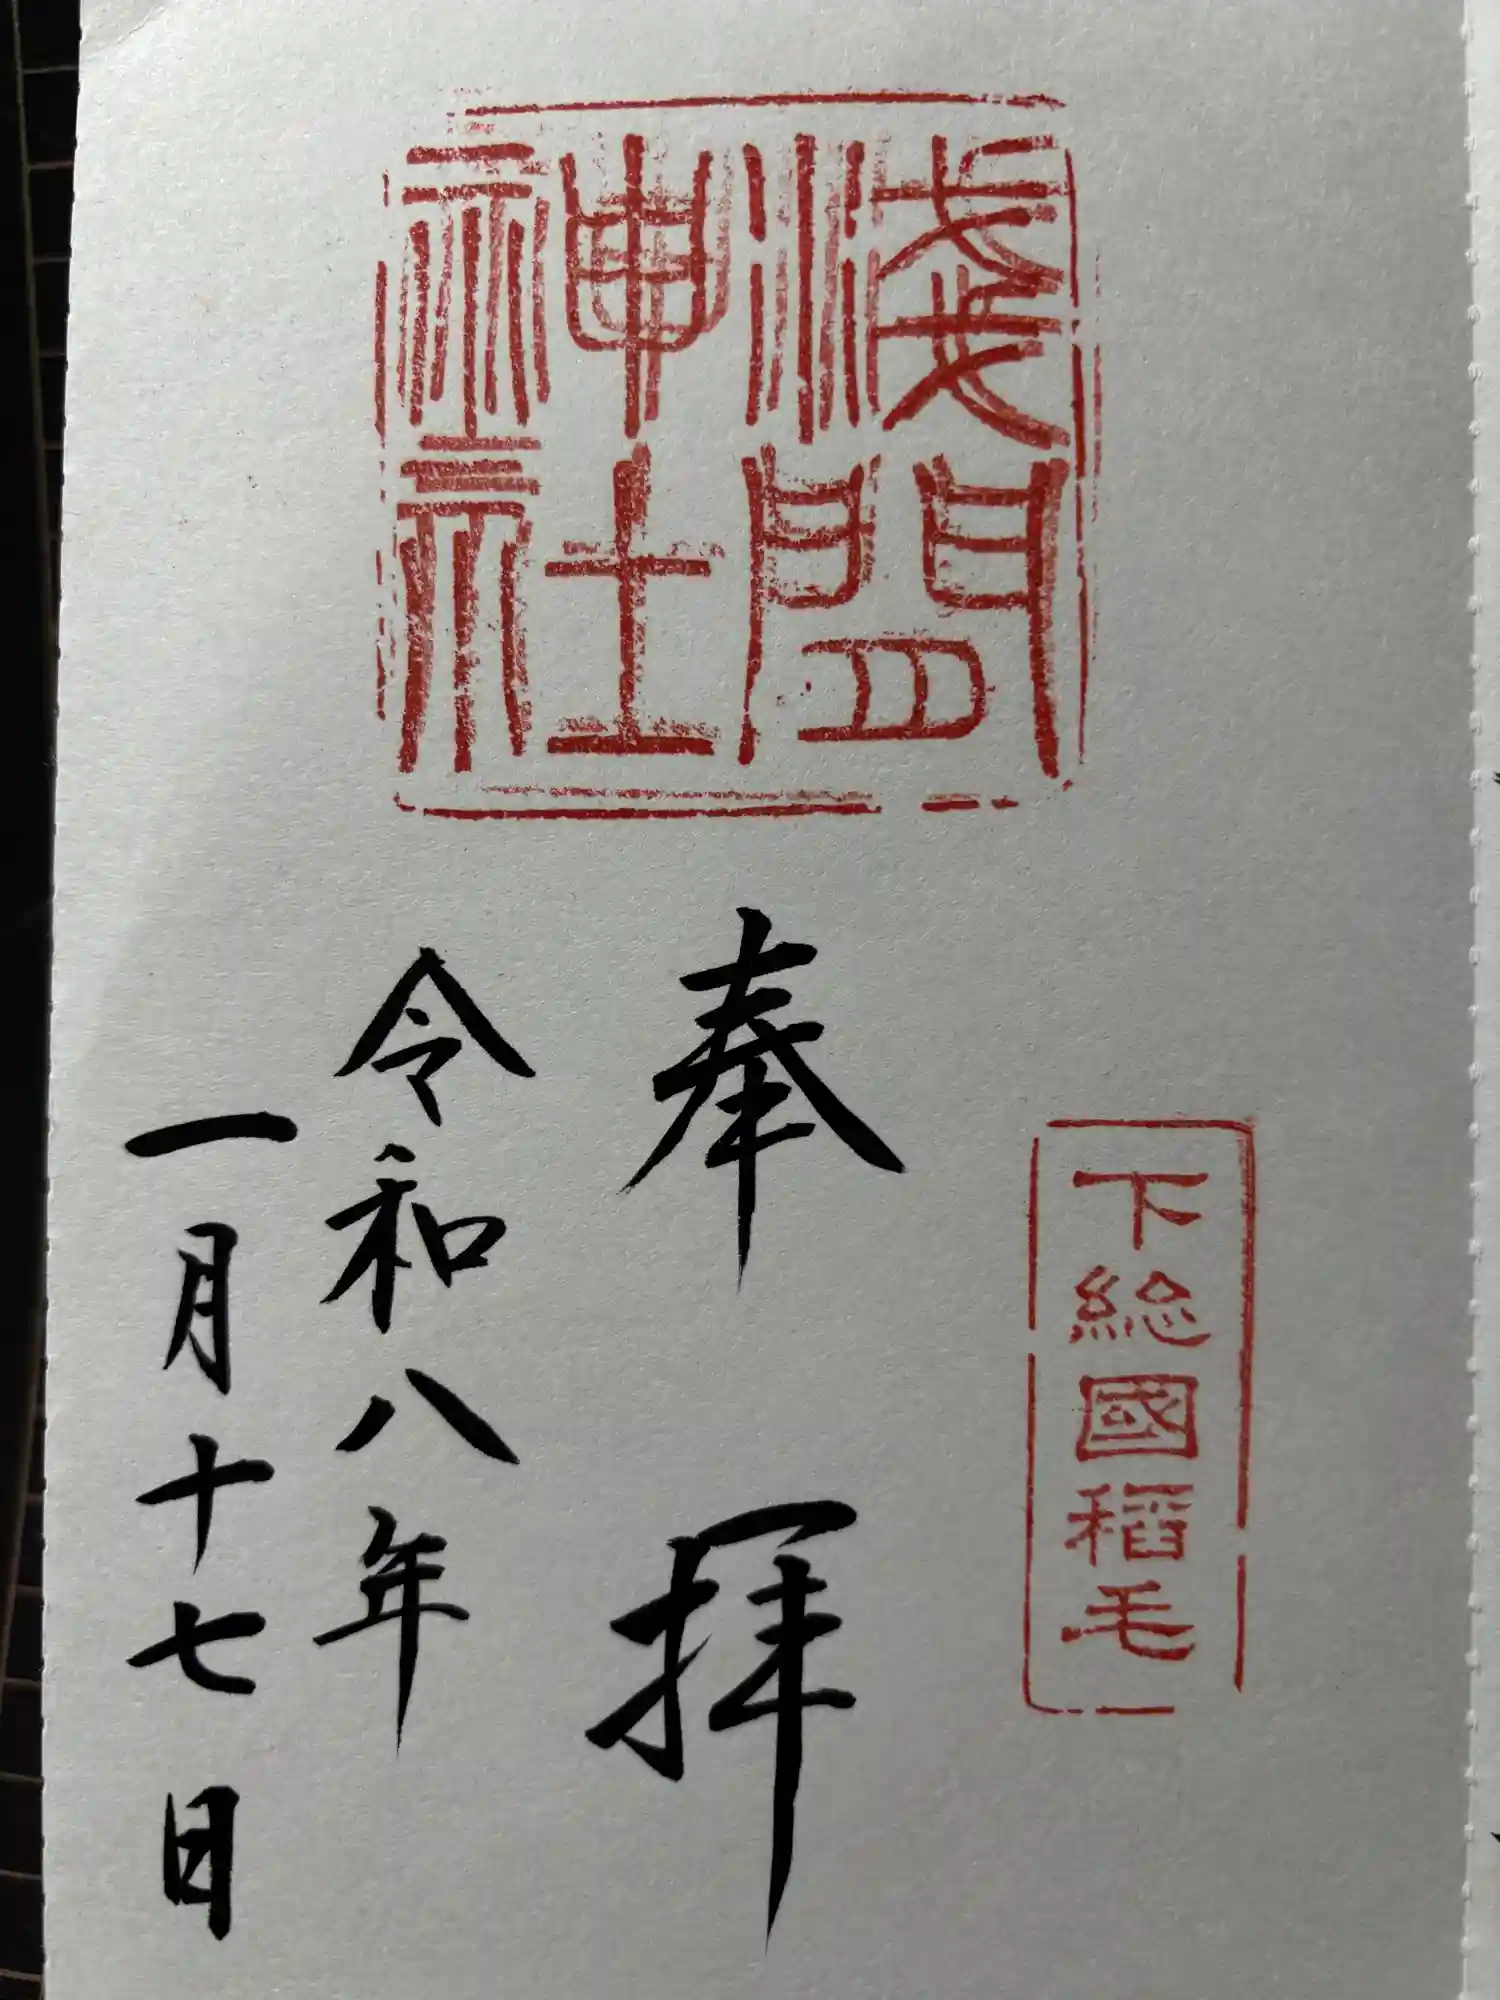 淺間神社
下総國稲毛
奉拝
令和八年
一月十七日